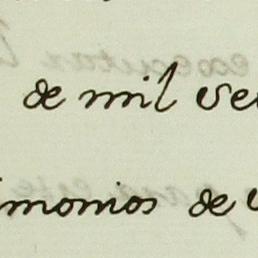 de mil se
imonios de